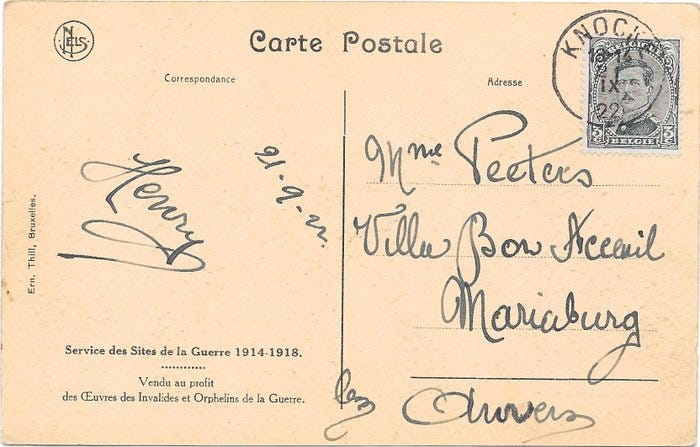 NELS
Carte Postale
Correspondance
Adresse
KNOCK
IX
22
BELGIQUE
3 BELGIE 3
Henry
Mme Peeters
Villa Bon Acceuil
Mariaburg
Anvers
Ern. Thill, Bruxelles.
Service des Sites de la Guerre 1914-1918.
Vendu au profit
des Œuvres des Invalides et Orphelins de la Guerre.